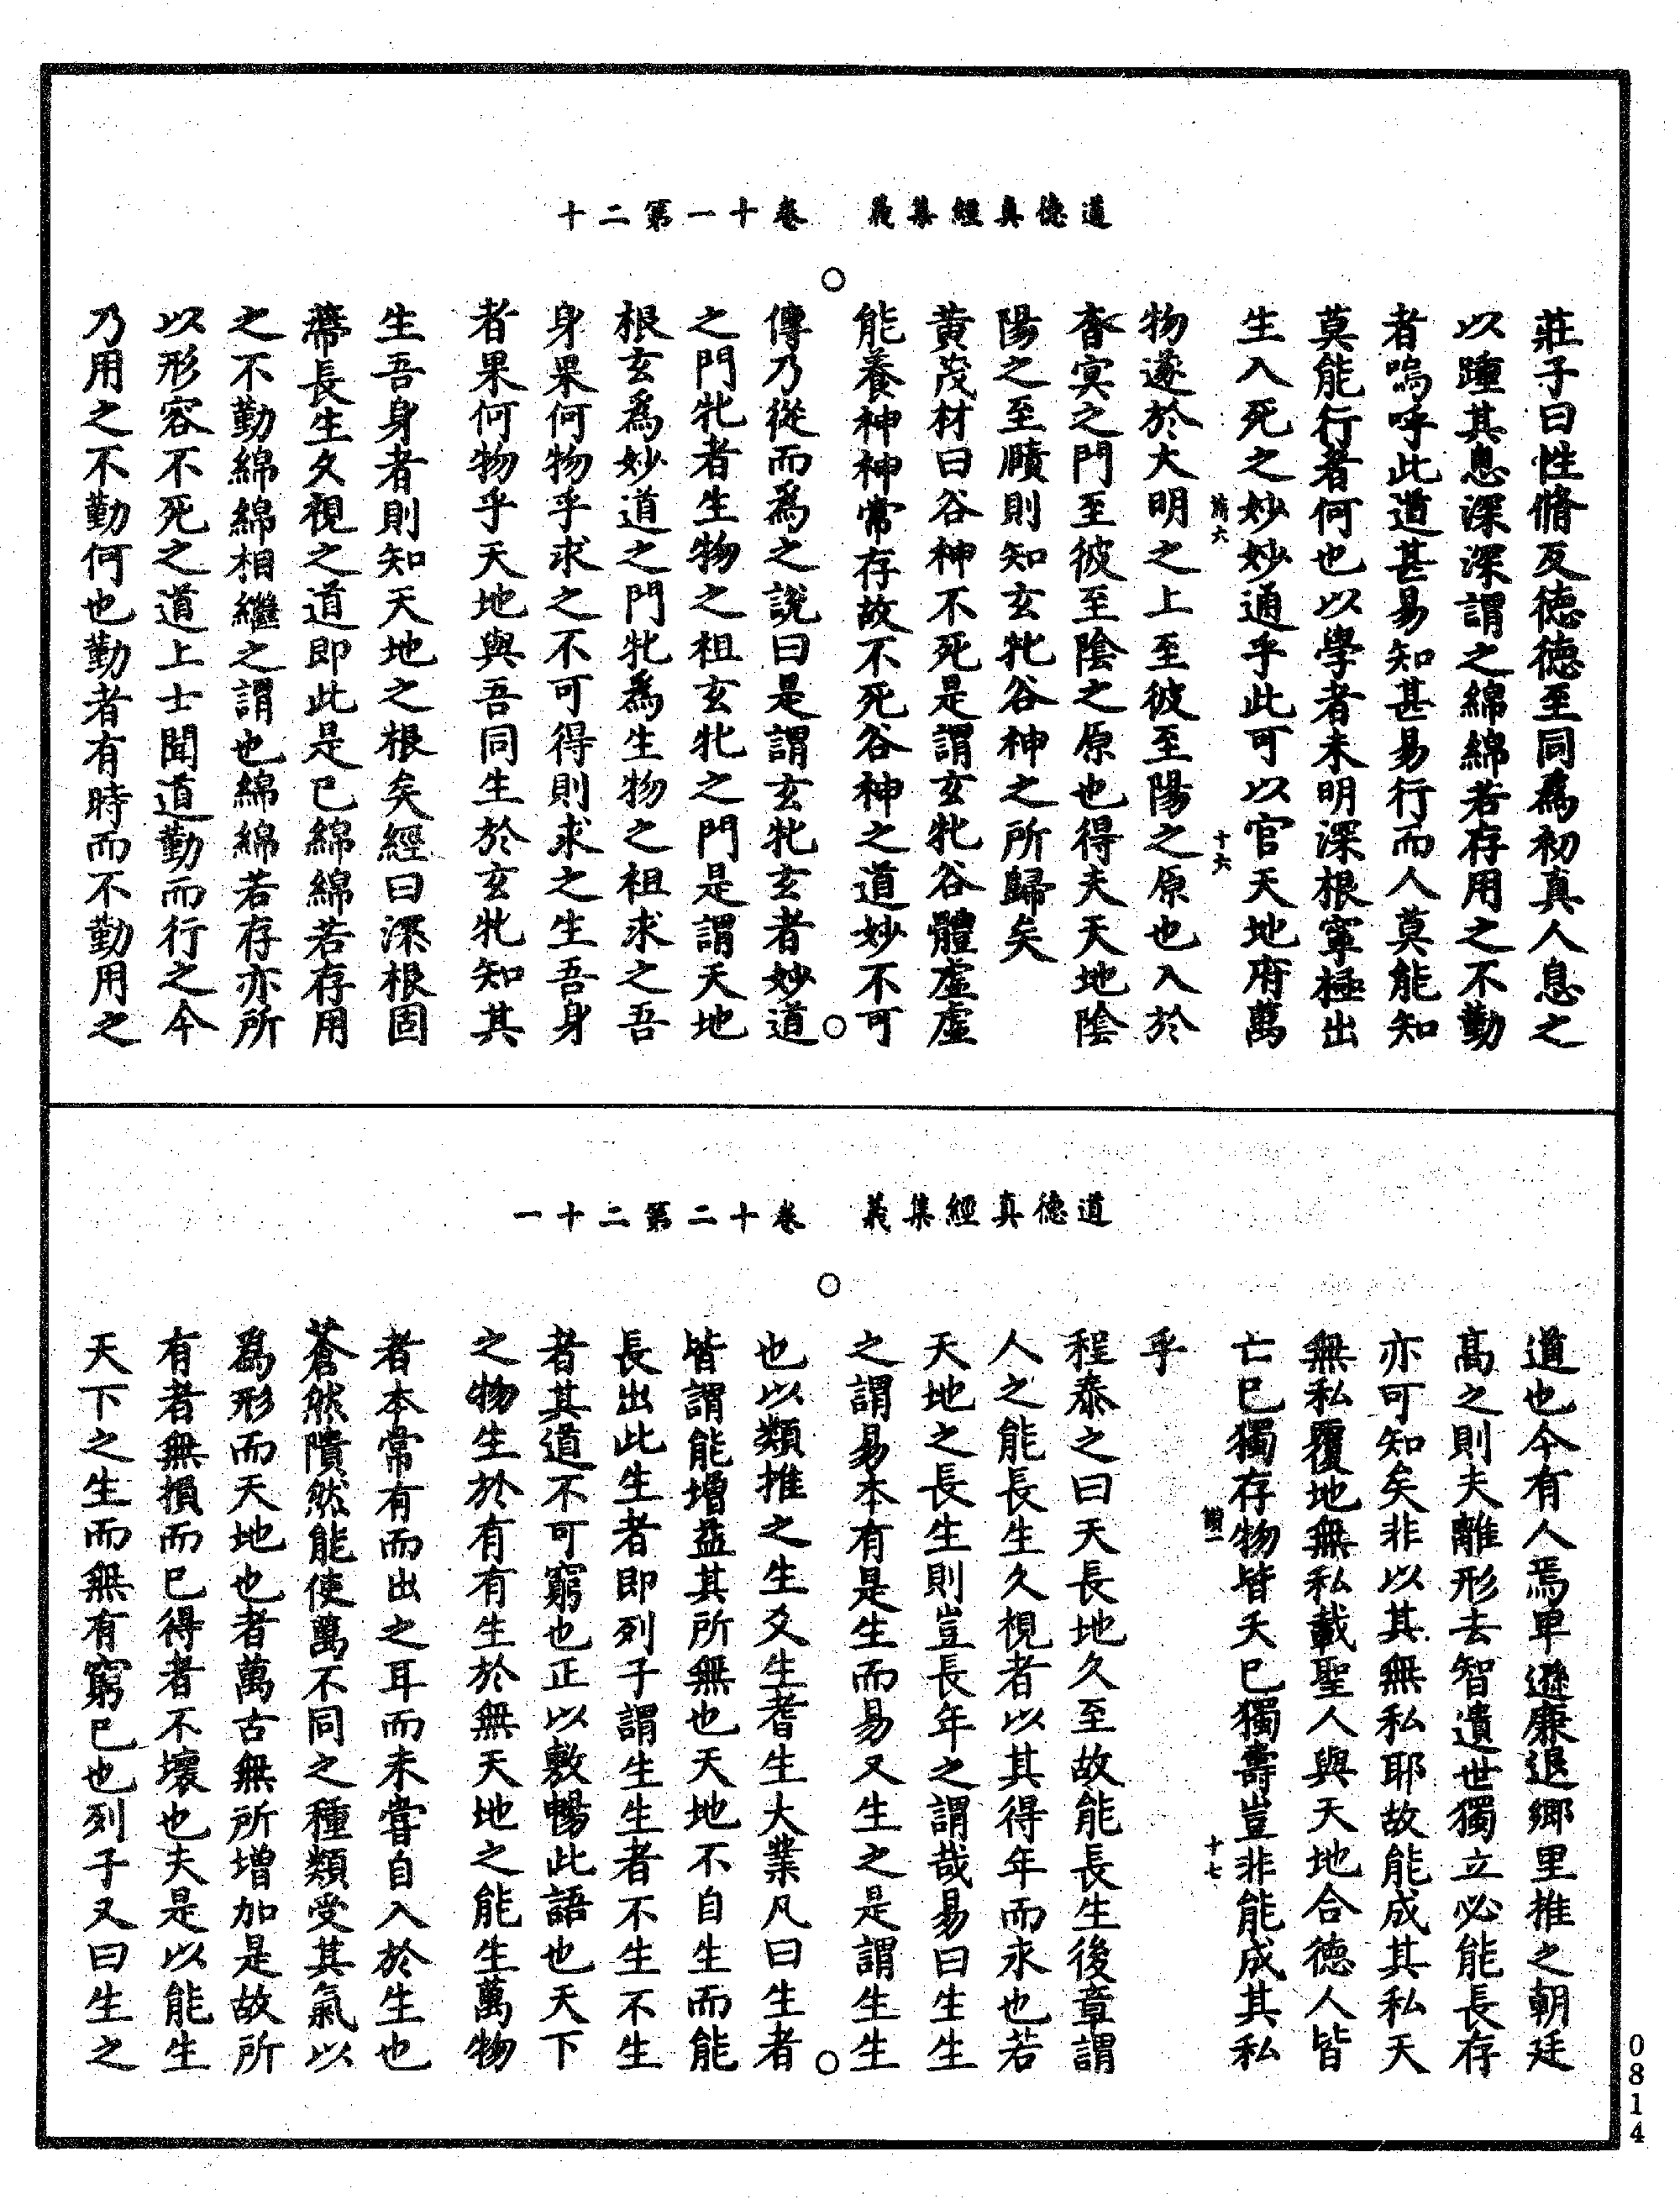 道德真經集義　卷十一第二十
莊子曰性脩反德德至同爲初真人息之
以踵其息深深謂之綿綿若存用之不勤
者嗚呼此道甚易知甚易行而人莫能知
莫能行者何也以學者未明深根寧極出
生入死之妙妙通乎此可以官天地府萬
十六
物遂於大明之上至彼至陽之原也入於
杳冥之門至彼至陰之原也得夫天地陰
陽之至賾則知玄牝谷神之所歸矣
黄茂材曰谷神不死是謂玄牝谷體虛虛
能養神神常存故不死谷神之道妙不可
傳乃從而爲之說曰是謂玄牝玄者妙道
之門牝者生物之祖玄牝之門是謂天地
根玄爲妙道之門牝爲生物之祖求之吾
身果何物乎求之不可得則求之生吾身
者果何物乎天地與吾同生於玄牝知其
生吾身者則知天地之根矣經曰深根固
蔕長生久視之道即此是已綿綿若存用
之不勤綿綿相繼之謂也綿綿若存亦所
以形容不死之道上士聞道勤而行之今
乃用之不勤何也勤者有時而不勤用之
道德真經集義　卷十二第二十一
道也今有人焉卑遜廉退鄉里推之朝廷
高之則夫離形去智遺世獨立必能長存
亦可知矣非以其無私耶故能成其私天
無私覆地無私載聖人與天地合德人皆
亡已獨存物皆夭已獨壽豈非能成其私
十七
乎
程泰之曰天長地久至故能長生後章謂
人之能長生久視者以其得年而永也若
天地之長生則豈長年之謂哉易曰生生
之謂易本有是生而易又生之是謂生生
也以類推之生爻生蓍生大業凡曰生者
皆謂能增益其所無也天地不自生而能
長出此生者即列子謂生生者不生不生
者其道不可窮也正以敷暢此語也天下
之物生於有有生於無天地之能生萬物
者本常有而出之耳而未嘗自入於生也
蒼然隤然能使萬不同之種類受其氣以
爲形而天地也者萬古無所增加是故所
有者無損而已得者不壞也夫是以能生
天下之生而無有窮已也列子又曰生之
0814